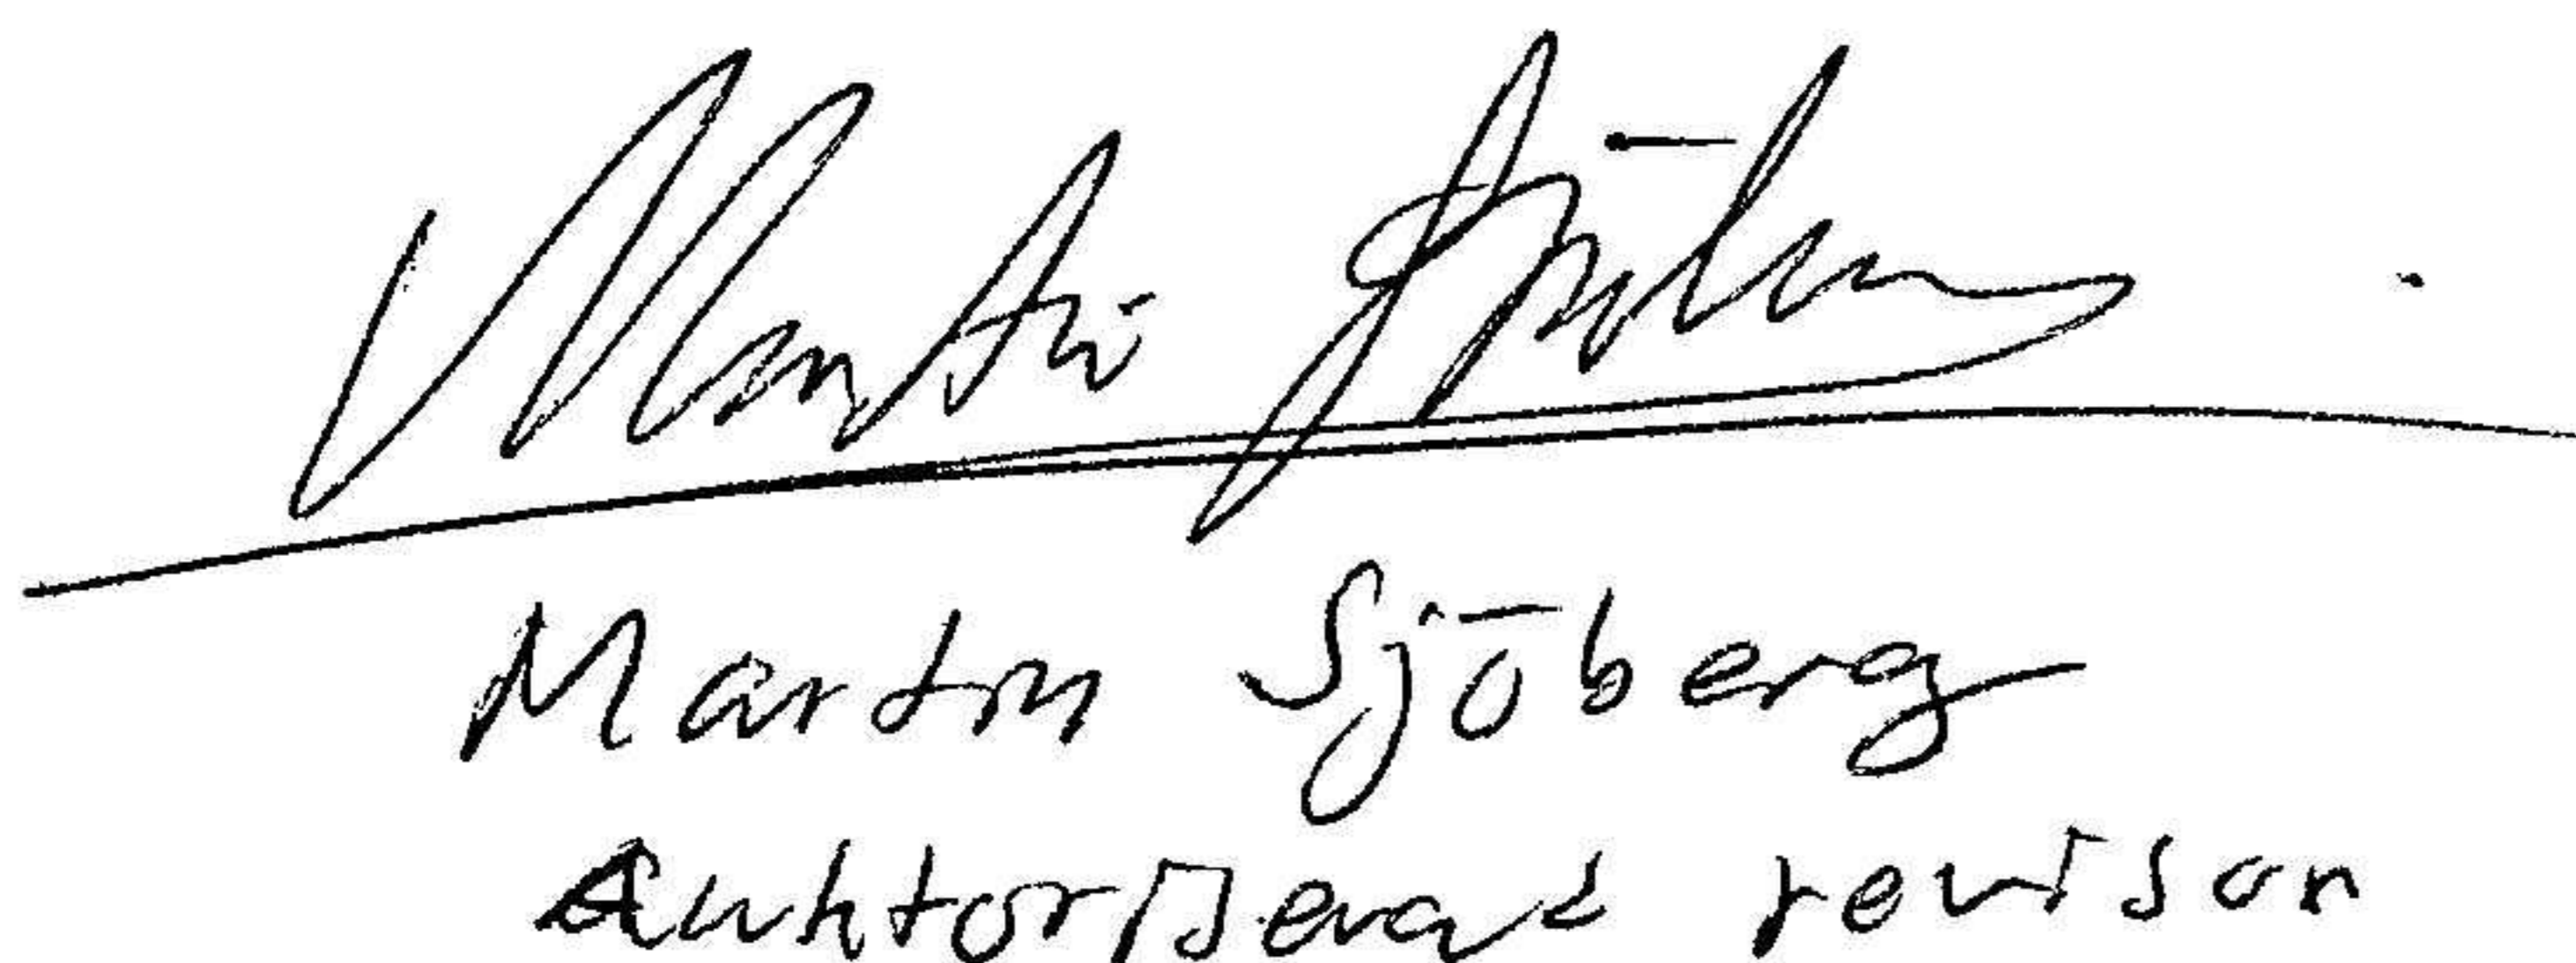 Martin Sjöberg
Martin Sjöberg
Auktoriserad revisor